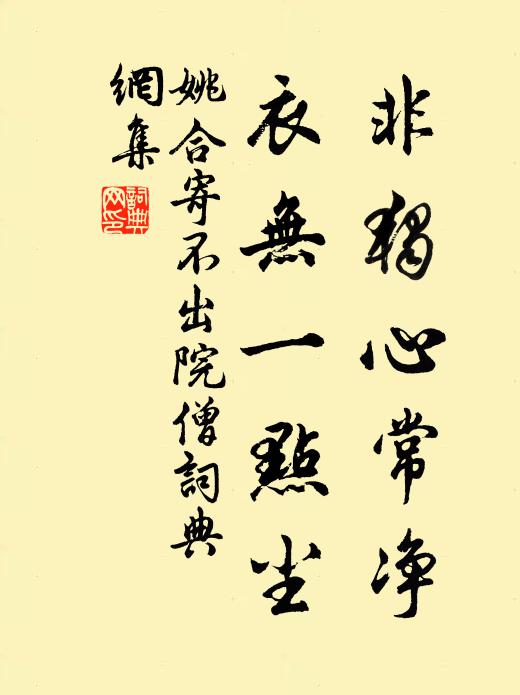 非獨心常净
衣無一點尘
姚合寄不出院僧詞典
網集
詞典
网印